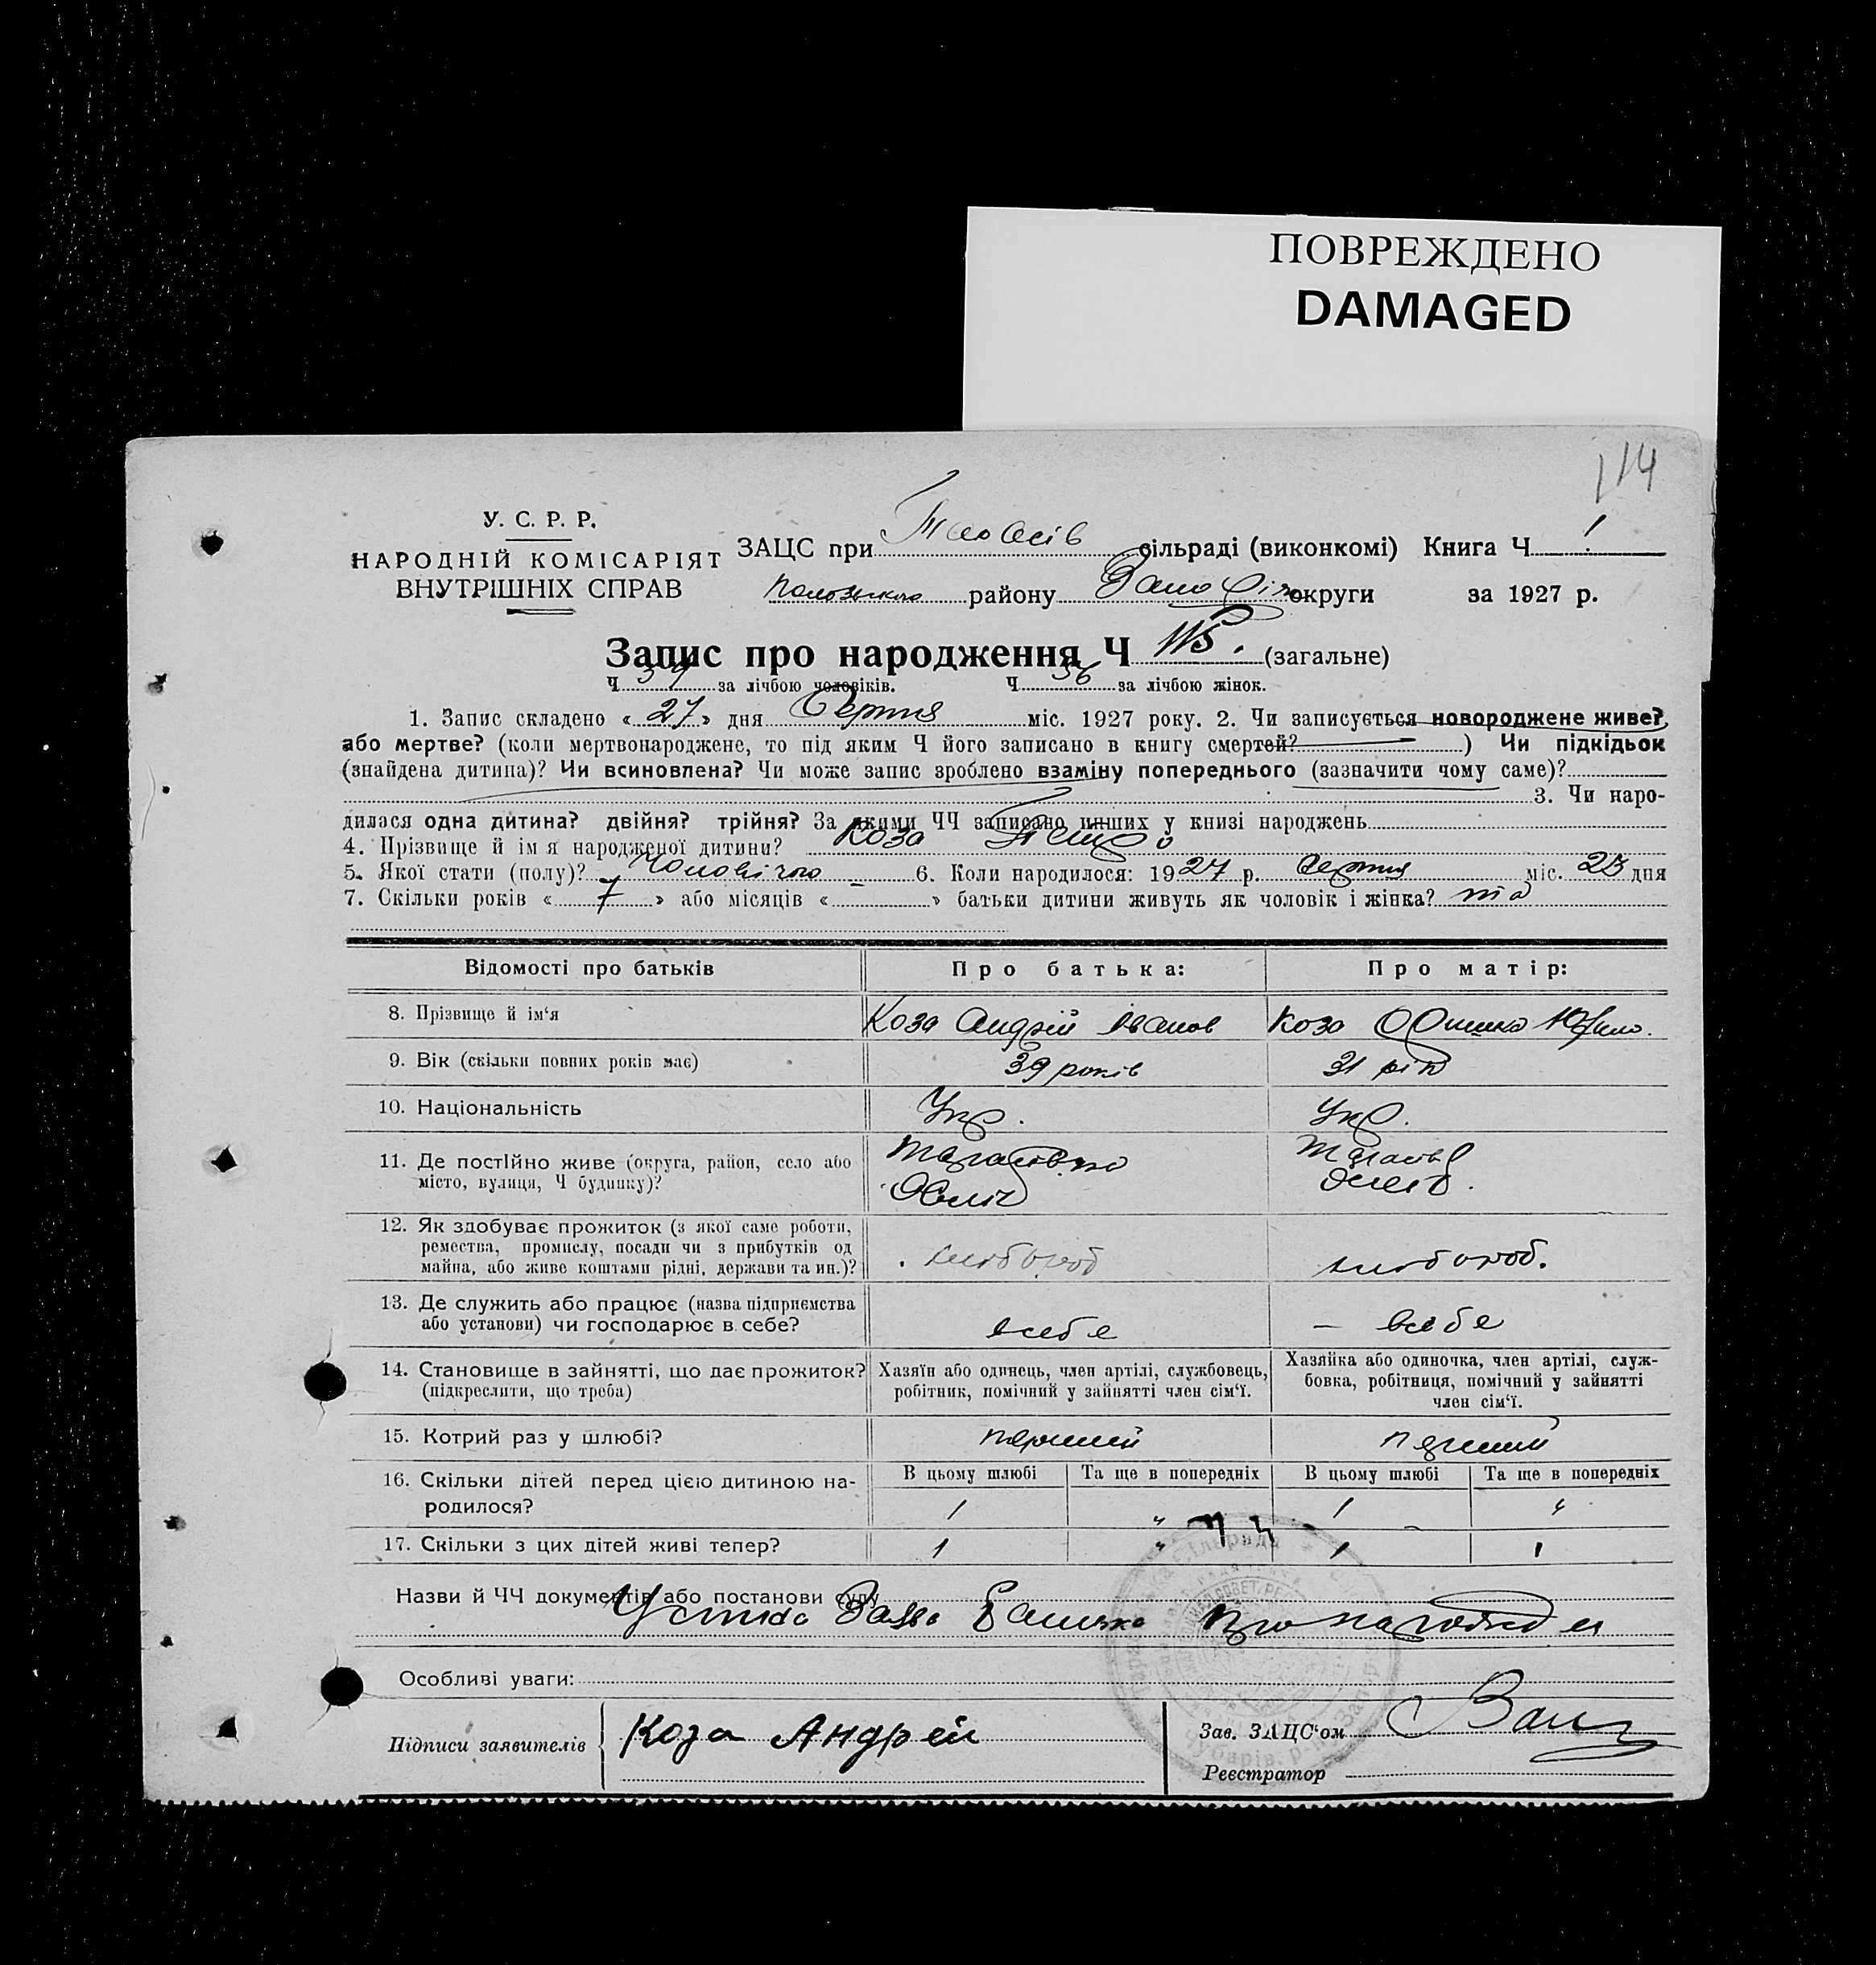 ПОВРЕЖДЕНО
DAMAGED
114
У. С. Р. Р.
НАРОДНІЙ КОМІСАРІЯТ
ВНУТРІШНІХ СПРАВ
ЗАЦС при сільраді (виконкомі) Книга Ч 1
району округи за 1927 р.
Запис про народження Ч 115. (загальне)
Ч за лічбою чоловіків. Ч 56 за лічбою жінок.
1. Запис складено « 27 » дня Серпня міс. 1927 року. 2. Чи записується новороджене живе?
або мертве? (коли мертвонароджене, то під яким Ч його записано в книгу смертей? ) Чи підкідьок
(знайдена дитина)? Чи всиновлена? Чи може запис зроблено взаміну попереднього (зазначити чому саме)?
3. Чи наро-
дилася одна дитина? двійня? трійня? За якими ЧЧ записано инших у книзі народжень
4. Прізвище й ім'я народженої дитини? Коза Петро
5. Якої стати (полу)? Чоловічого 6. Коли народилося: 1927 р. Серпня міс. 23 дня
7. Скільки років « 7 » або місяців « — » батьки дитини живуть як чоловік і жінка?
Відомості про батьків Про батька: Про матір:
8. Прізвище й ім'я Коза Андрій Іванов Коза
9. Вік (скільки повних років має) 39 років 31 рік
10. Національність Укр. Укр.
11. Де постійно живе (округа, район, село або
місто, вулиця, Ч будинку)?
12. Як здобуває прожиток (з якої саме роботи,
ремества, промислу, посади чи з прибутків од
майна, або живе коштами рідні, держави та ин.)? хлібороб хлібороб.
13. Де служить або працює (назва підприємства
або установи) чи господарює в себе? в себе — в себе
14. Становище в зайнятті, що дає прожиток?
(підкреслити, що треба)
Хазяїн або одинець, член артілі, службовець,
робітник, помічний у зайнятті член сім'ї.
Хазяйка або одиночка, член артілі, служ-
бовка, робітниця, помічний у зайнятті
член сім'ї.
15. Котрий раз у шлюбі? перший перший
16. Скільки дітей перед цією дитиною на-
родилося?
В цьому шлюбі Та ще в попередніх В цьому шлюбі Та ще в попередніх
1 " 1 "
17. Скільки з цих дітей живі тепер? 1 " 1
Назви й ЧЧ документів або постанови суду
Устна Заява Батька про народження
Особливі уваги:
Підписи заявителів Коза Андрей
Зав. ЗАЦС'ом
Реєстратор